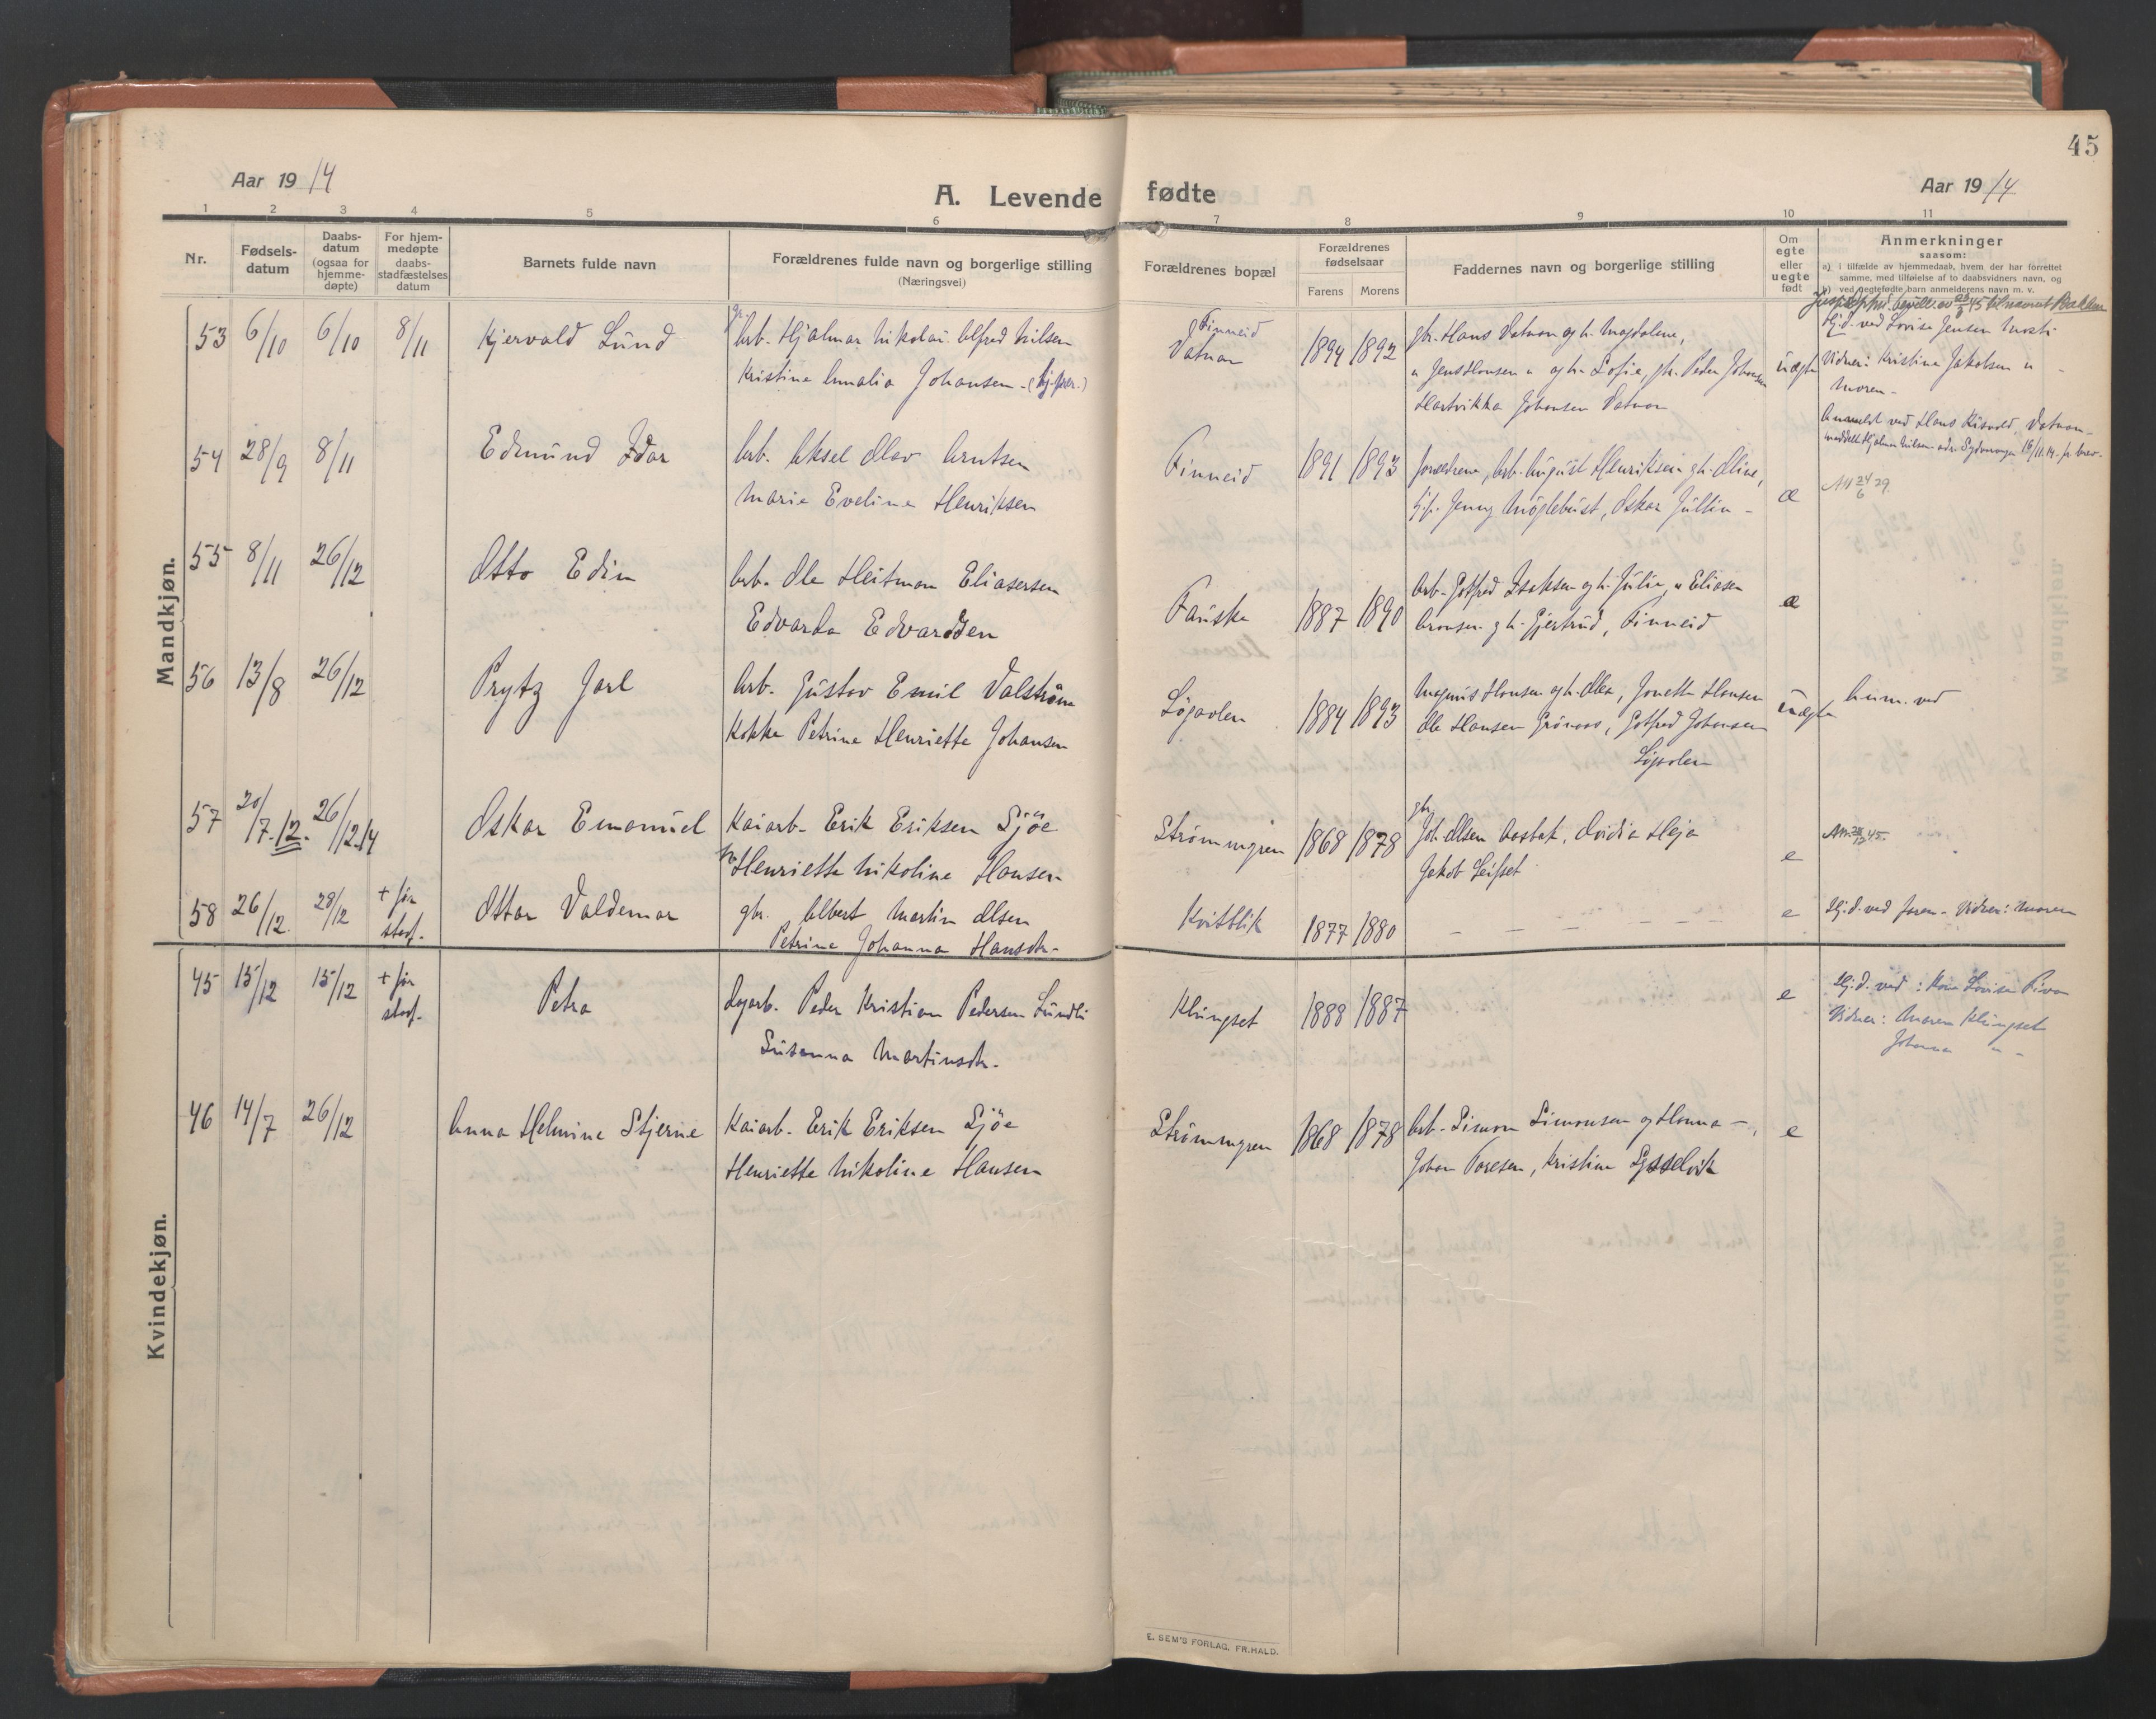 45
Aar 19 14
A. Levende fødte
Aar 19 14
1 2 3 4 5 6 7 8 9 10 11
Nr.
Fødsels-
datum
Daabs-
datum
(ogsaa for
hjemme-
døpte)
For hjem-
medøpte
daabs-
stadfæstelses
datum
Barnets fulde navn
Forældrenes fulde navn og borgerlige stilling
(Næringsvei)
Forældrenes bopæl
Forældrenes
fødselsaar
Farens Morens
Faddernes navn og borgerlige stilling
Om
egte
eller
uegte
født
Anmerkninger
saasom:
a) i tilfælde av hjemmedaab, hvem der har forrettet
samme, med tilføielse af to daabsvidners navn, og
b) ved uegtefødte barn anmelderens navn m. v.
Mandkjøn.
53 6/10 6/10 8/11 Kjervald Lund
Arb. Hjalmar Nikolai Alfred Nilsen
Kristine Amalia Johansen
Finneid
Vatnan
1894 1892
gbr. Hans Vatnan og h. Magdalene,
" Jens Hansen " og h. Sofie, gbr. Peder Johansen
Hartvikka Johansen Vatnan
uægte
Hj. d. ved Lovise Jensen
Vidner: Kristine Jakobsen "
Moren -
Anmeldt ved Hans Vatnan
54 28/9 8/11 Edmund Idar
Arb. Aksel Olav Arntsen
Marie Eveline Henriksen
Finneid
1891 1893
Forældrene, Arb. August Henriksen og h. Oline,
Jenny Møglebust, Oskar Jullin -
æ
24/6 29
55 8/11 26/12 Otto Edin
Arb. Ole Heitman Eliasersen
Edvarda Edvardsen
Fauske
1887 1890
Arb. Gotfred Isaksen og h. Julie, " Eliasen
Aronsen og h. Gjertrud, Finneid
æ
56 13/8 26/12 Prytz Jarl
Arb. Gustav Emil Valstrøm
Kokke Petrine Henriette Johansen
Løgavlen
1884 1893
Magnus Hansen og h. Olea, Jonette Hansen
Ole Hansen Grønaas, Gotfred Johansen
Løgavlen
uægte
Anm. ved
57 20/7.12. 26/12.14 Oskar Emanuel
Kaiarb. Erik Eriksen Sjøe
Henriette Nikoline Hansen
Strømmgren
1868 1878
gbr.
Joh. Olsen Aasbak, Ovidia Heja
Jakob Leifset
e
58 26/12 28/12 + før
stadf.
Ottar Valdemar
gbr. Albert Martin Olsen
Petrine Johanna Hansdtr.
Kvitblik
1877 1880
— — — — — —
e
Hj. d. ved faren - Vidner: Moren
Kvindekjøn.
45 15/12 15/12 + før
stadf.
Petra
Dagarb. Peder Kristian Pedersen Lundli
Susanna Martinsdtr.
Klungset
1888 1887
e
Hj. d. ved: Kone Lovise
Vidner: Maren Klungset
Johanna " -
46 14/7 26/12
Anna Helmine Stjerne
Kaiarb. Erik Eriksen Sjöe
Henriette Nikoline Hansen
Strømmgren
1868 1878
Arb. Simon Simonsen og Hanna —,
Johan Paresen, Kristine Lysselvik
e
E. SEM'S FORLAG, FR.HALD.